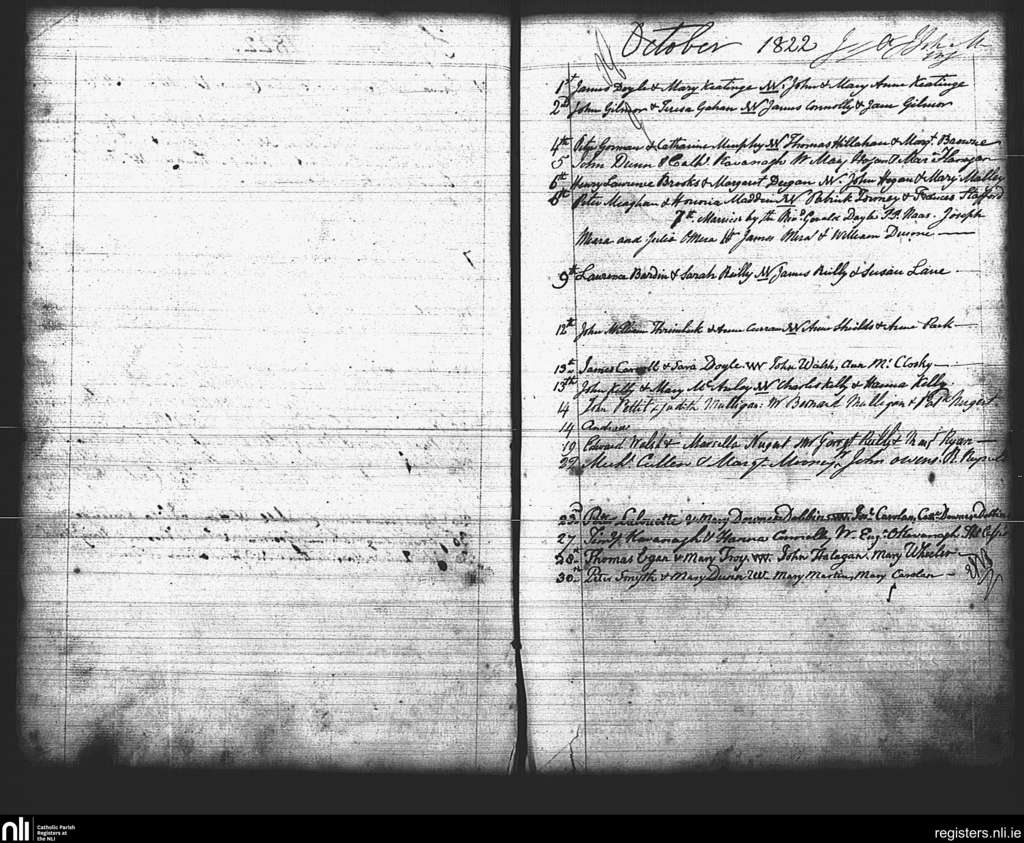 1822.
October 1822
1st James Doyle & Mary Keatinge W. John & Mary Anne Keatinge
2d John Gilmor & Teresa Gahan W James Connolly & Jane Gilmor
4th Peter Gorman & Catharine Murphy W Thomas Hillahan & Margt.
5 John Dunn & Cathe. Kavanagh W May & Flanagan
6th Henry Laurence Brooks & Margaret W. John Hogan & Mary Malley
6th Peter Meaghan & Honoria Madden W Patrick & Frances Stafford
7th. Married by the Revd. Gerald Doyle P.P. Naas. Joseph
Meara and Julia OMeara W James Mera & William
9th Laurence Bardin & Sarah Reilly W James Reilly & Susan Lane
12th John William & Anne Curran W Anne Shields & Anne Park
13th James Carroll & Sara Doyle W John Walsh, Ann Mc. Closky
13th John Kelly & Mary McAnley W Charles Kelly & Hanna Kelly
14 John Pettit & Judith Mulligan: W Bernard Mulligan & Nugent
14 Andrew
19 Edward Walsh & Marcella Nugent W Garrett Reilly & Ryan
22 Michl. Cullen & Margt. John Owens. R.
23d Peter Lalouette & Mary Downes Dobbin W Jos. Carolan, Downes Dobbin
27 Timy. Kavanagh & Hanna Connolly W. OKavanagh
28th Thomas Egan & Mary Troy. W. John Halagan. Mary Wheeler
30th Peter Smyth & Mary Dunn W. Mary Martin, Mary Carolan
nli Catholic Parish
Registers at
the NLI
registers.nli.ie